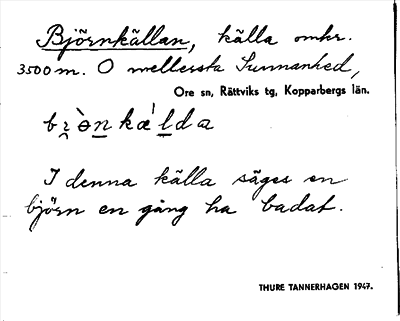 Björnkällan, källa omkr.
3500 m. O mellersta Sunnanhed,
Ore sn, Rättviks tg, Kopparbergs län.
I denna källa säges en
björn en gång ha badat.
THURE TANNERHAGEN 1947.